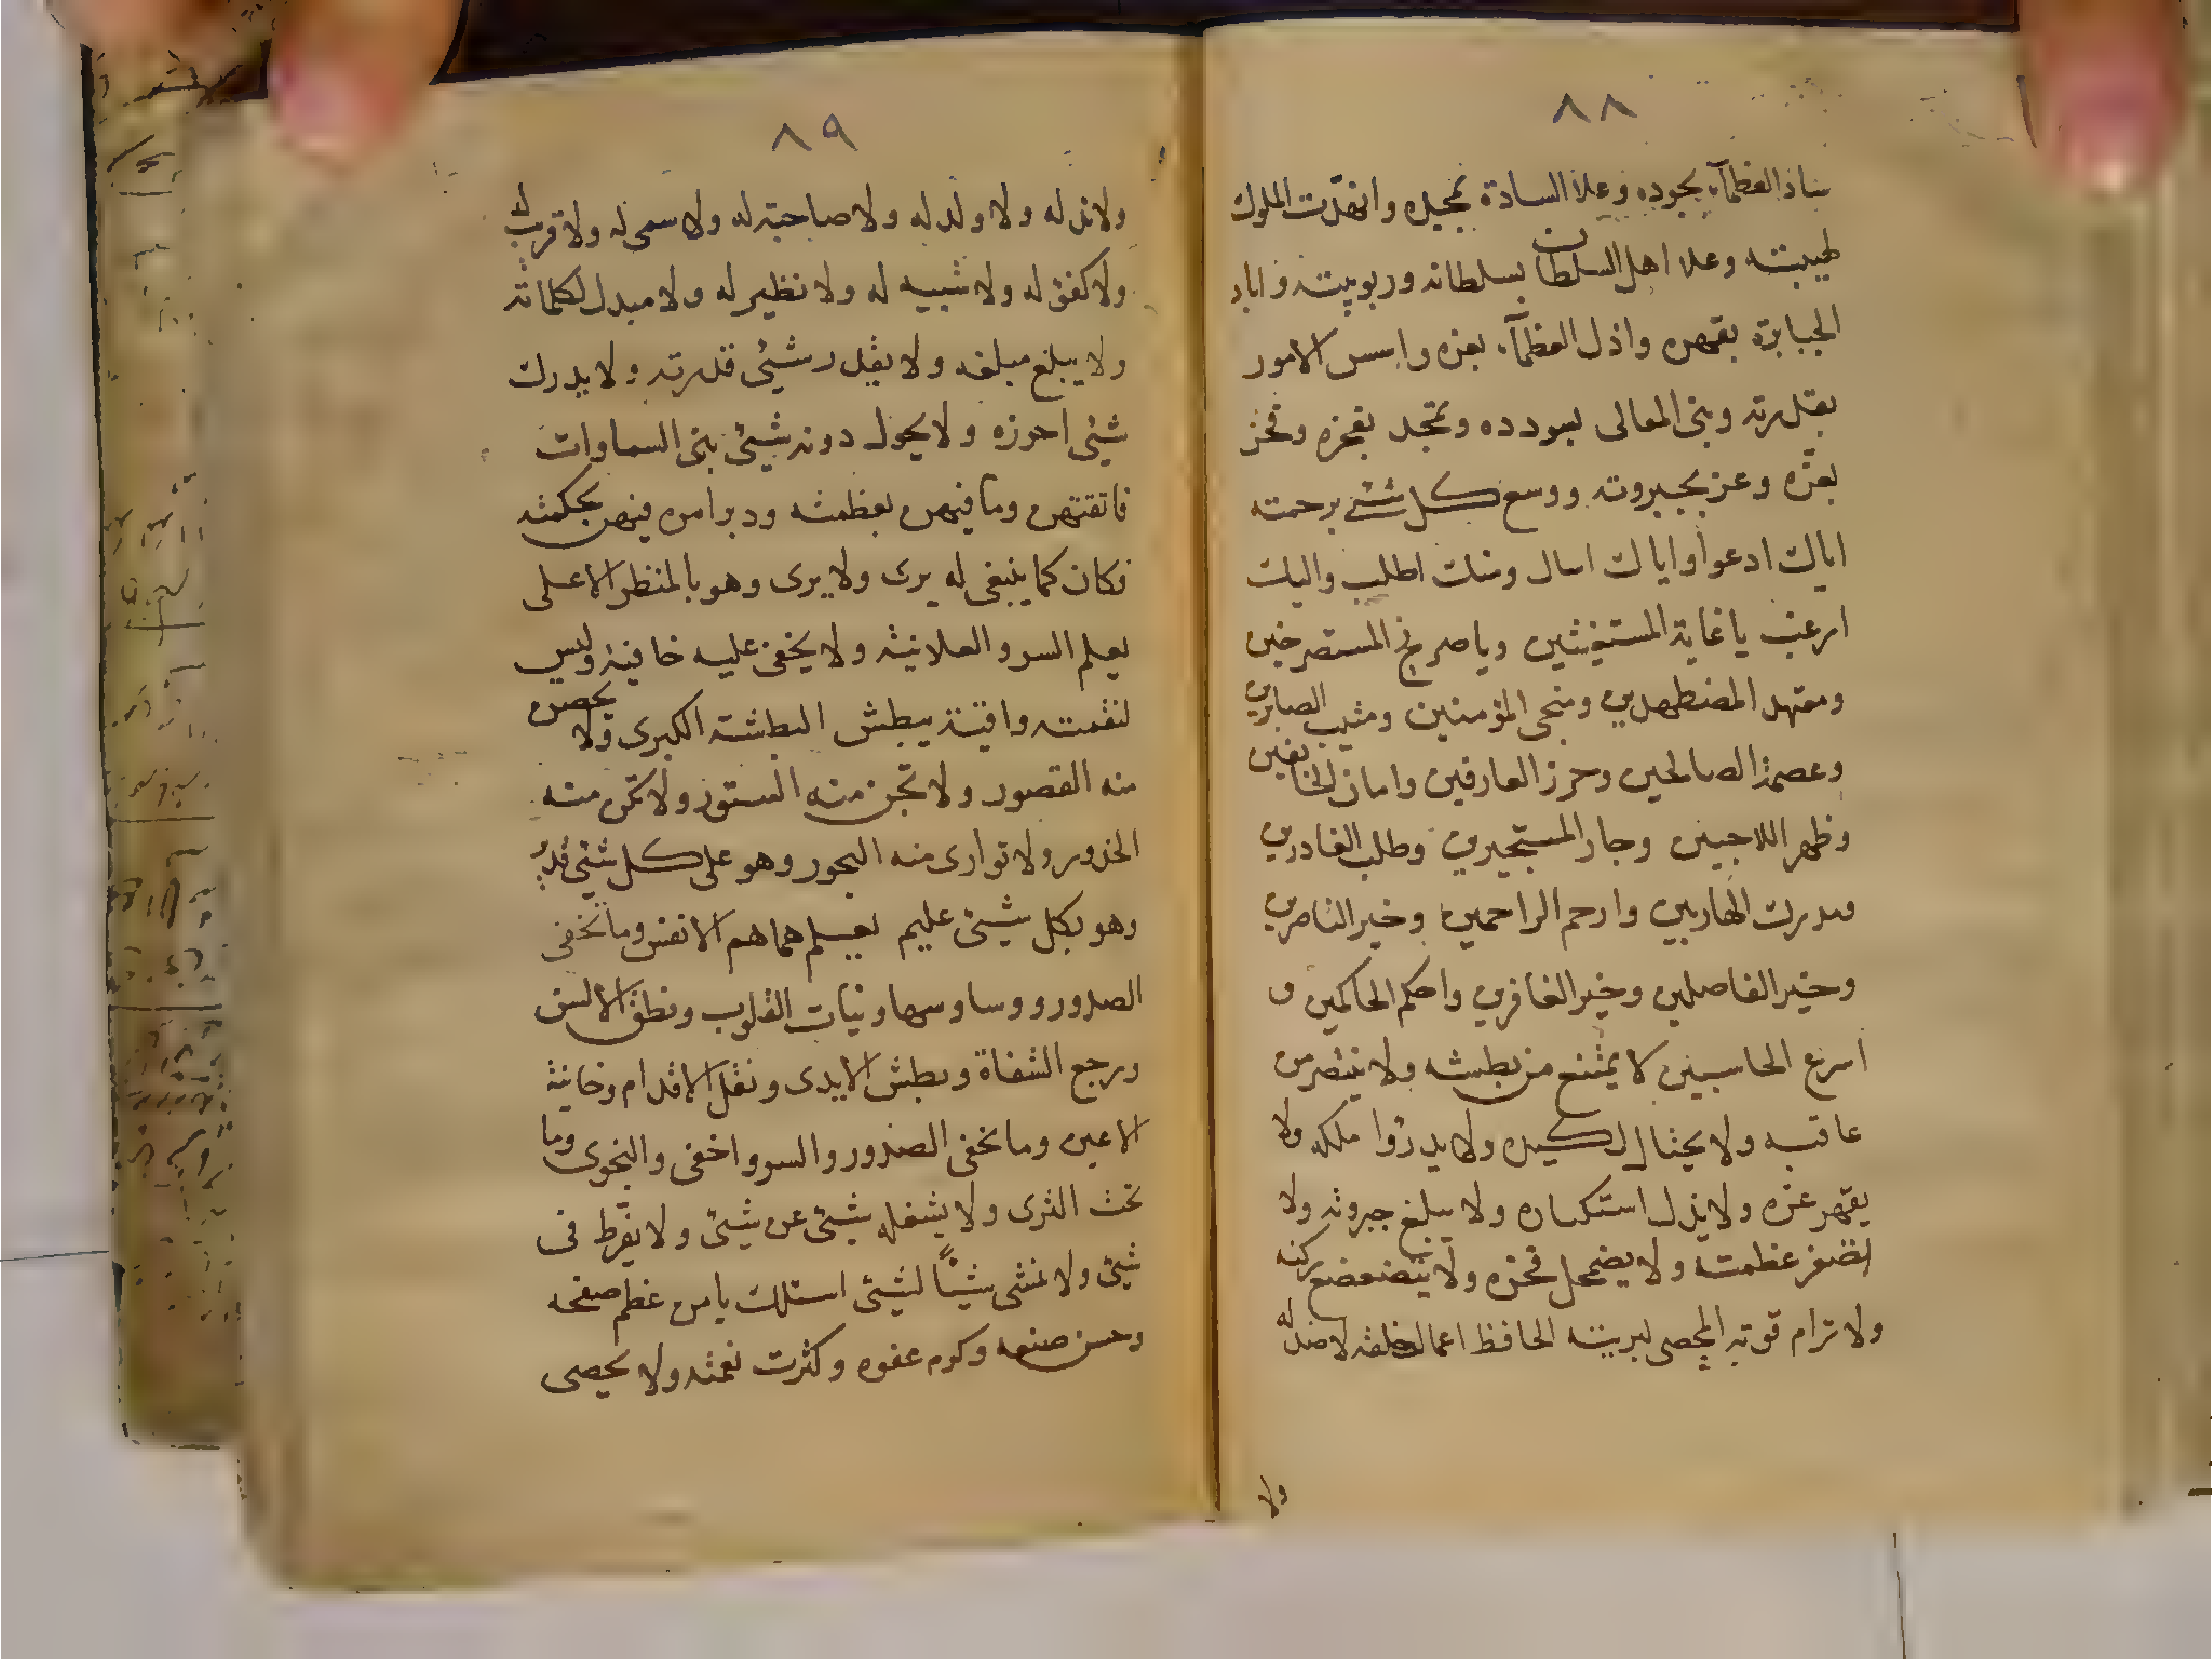 ٨٨
ساد العظمآء بجوده وعلا السادة بمجده وانهدت الملوك
لهيبته وعلا اهل السلطان بسلطانه وربوبيته واباد
الجبابرة بقهره واذل العظمآء بعزه واسس الامور
بقدرته وبنى المعالى بسودده وتمجد بفخره وفخر
بعزه وعز بجبروته ووسع كل شئ برحمته
اياك ادعوا واياك اسال ومنك اطلب واليك
ارغب يا غاية المستغيثين ويا صريخ المستصرخين
ومعتمد المضطهدين ومنجى المؤمنين ومثيب الصابرين
وعصمة الصالحين وحرز العارفين وامان الخائفين
وظهر اللاجيين وجار المستجيرين وطلب الغادرين
ومدرك الهاربين وارحم الراحمين وخير الناصرين
وخير الفاصلين وخير الغافرين واحكم الحاكمين و
اسرع الحاسبين لا يمتنع من بطشه ولا ينتصر من
عاقبه ولا يحتال لكيده ولا يدرؤا ملكه ولا
يقهر عزه ولا يذل استكباره ولا يبلغ جبروته ولا
تصغر عظمته ولا يضمحل فخره ولا يتضعضع ركنه
ولا ترام قوته المحصى لبريته الحافظ اعمال خلقه لا ضد له
ولا
٨٩
ولا ند له ولا ولد له ولا صاحبته له ولا سمى له ولا قريب له
ولا كفؤ له ولا شبيه له ولا نظير له ولا مبدل لكلماته
ولا يبلغ مبلغه ولا يقدر شيئ قدرته ولا يدرك
شيئ احوزه ولا يحول دونه شيئ بنى السماوات
فاتقنهن وما فيهن بعظمته ودبر امره فيهن بحكمته
فكان كما ينبغى له يرى ولا يرى وهو بالمنظر الاعلى
يعلم السر والعلانية ولا يخفى عليه خافية وليس
لنقمته واقية يبطش البطشة الكبرى ولا يحصن
منه القصور ولا تجن منه الستور ولا تكن منه
الخدور ولا توارى منه البحور وهو على كل شيئ قدير
وهو بكل شيئ عليم يعلم هماهم الانفس وما تخفى
الصدور ووساوسها ونيات القلوب ونطق الالسن
ورجع الشفاة وبطش الايدى ونقل الاقدام وخاينة
الاعين وما تخفى الصدور والسر واخفى والنجوى وما
تحت الثرى ولا يشغله شيئ عن شيئ ولا يفرط فى
شيئ ولا ينسى شيئًا لشيئ اسئلك يا من عظم صفحه
وحسن صنعه وكرم عفوه وكثرت نعمته ولا يحصى